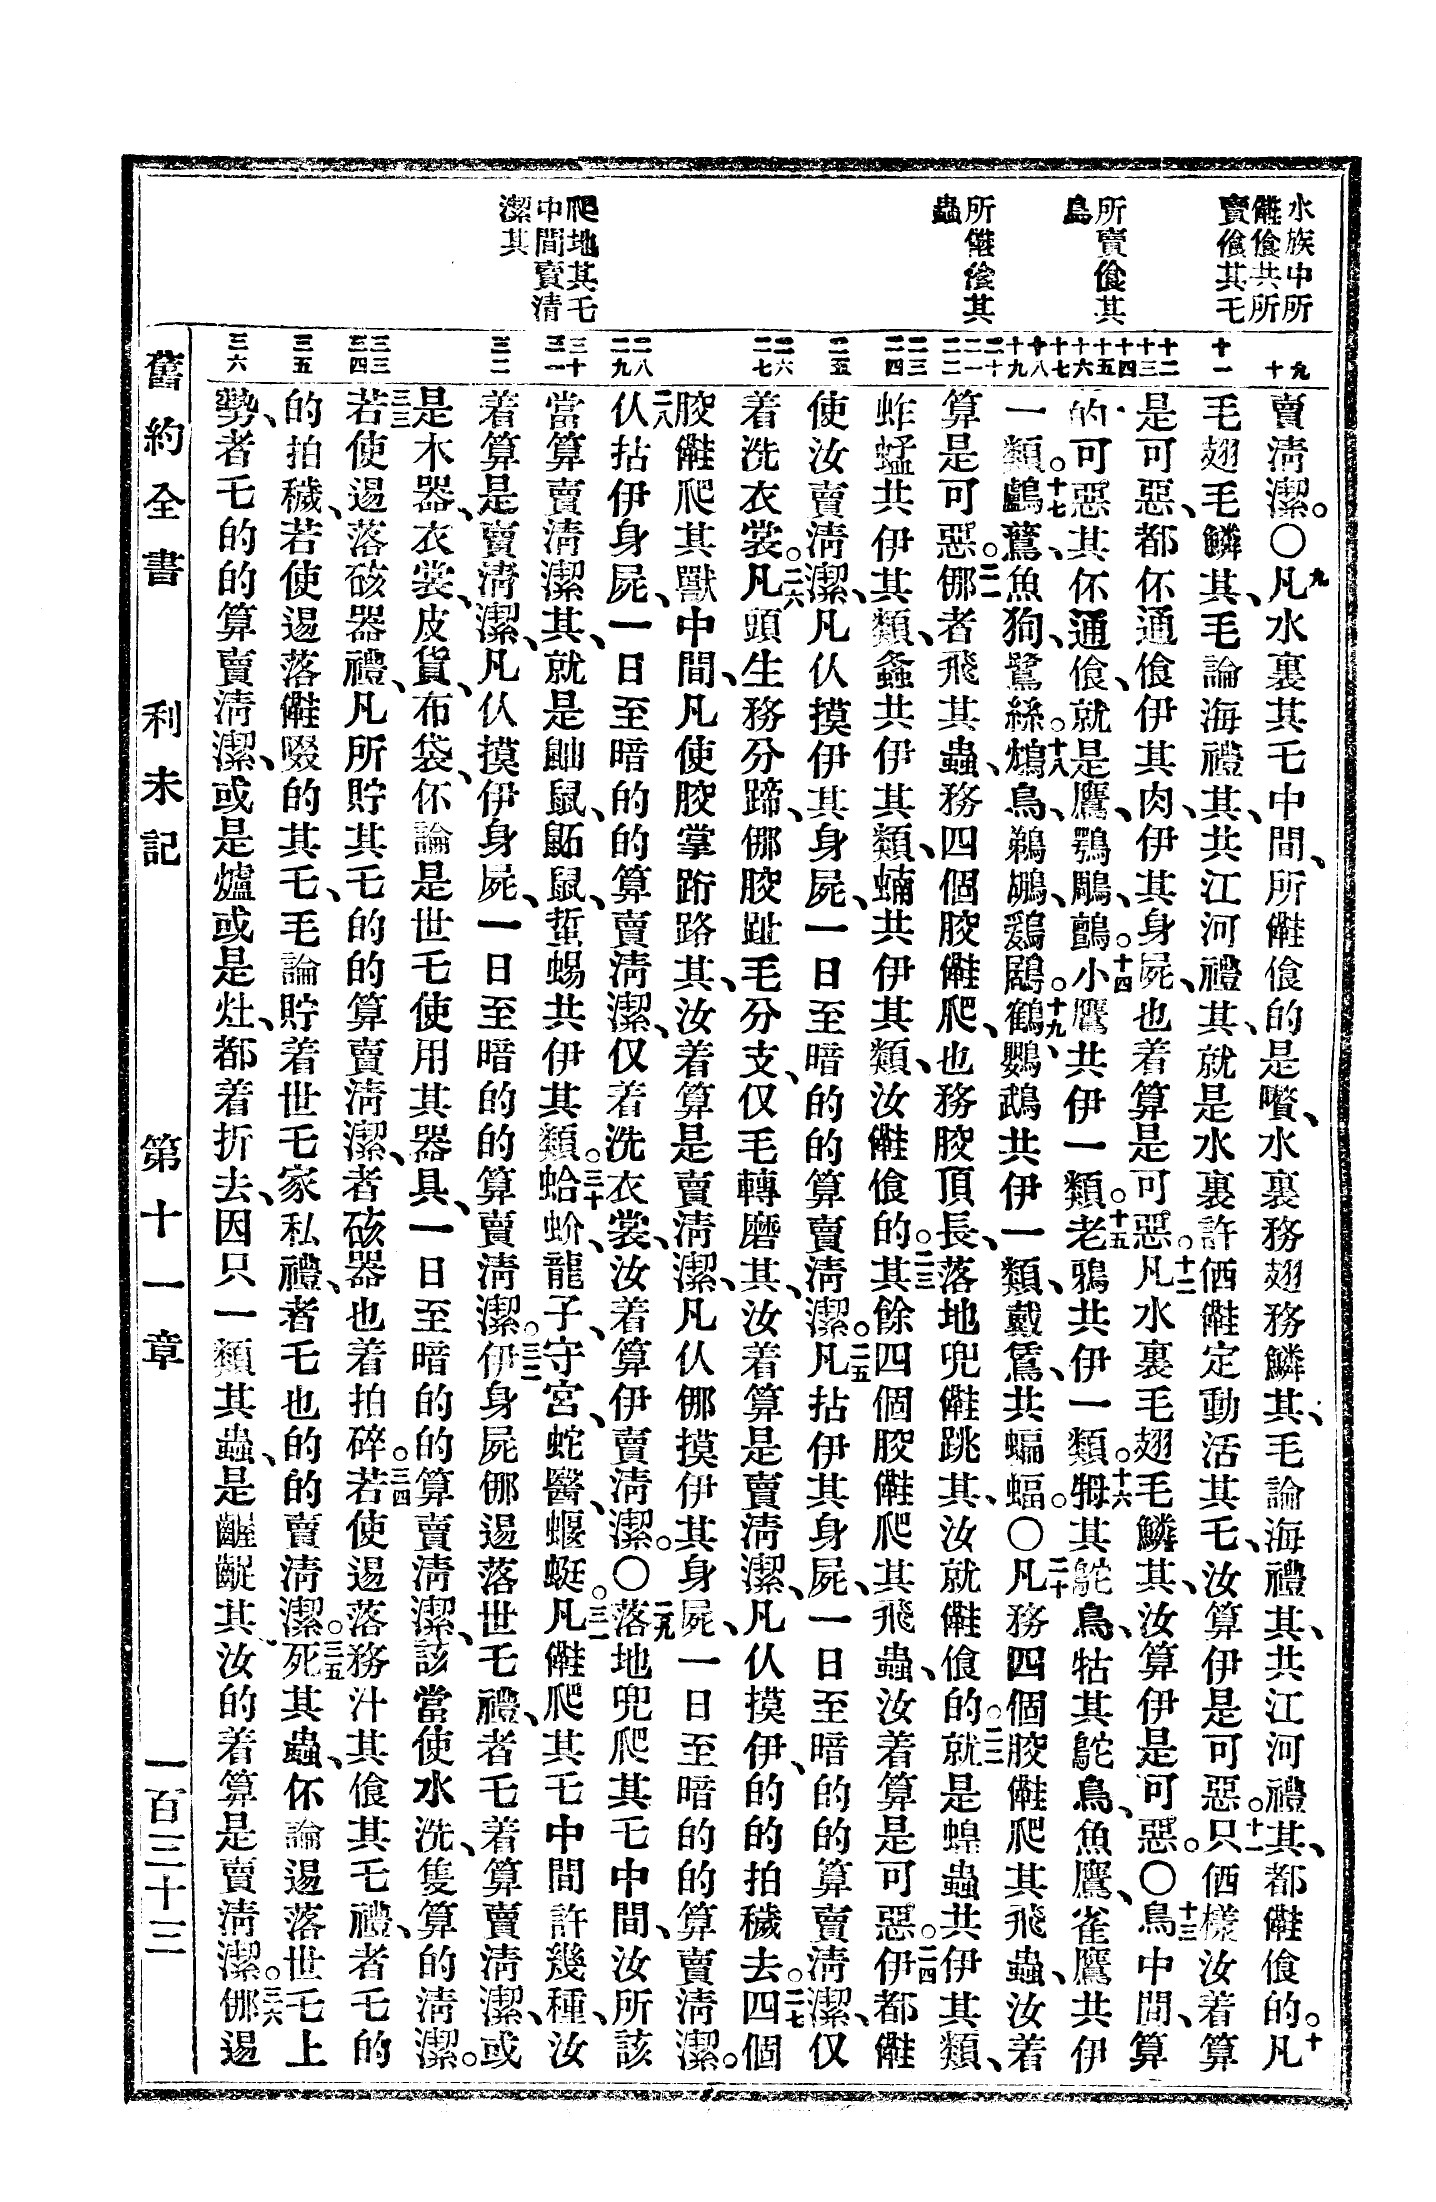 水族中所
㒰飧共所
賣飧其乇
所賣飧其
鳥
所㒰飧其
蟲
爬地其乇
中間賣清
潔其
九 十 十一 十二 十三 十四 十五 十六 十七 十八 十九 二十 二一 二二 二三 二四 二五 二六 二七 二八 二九 三十 三一 三二 三三 三四 三五 三六
賣清潔。〇九凡水裏其乇中間、所㒰飧的是嚽、水裏務翅務鱗其、毛論海禮其、共江河禮其、都㒰飧的。十凡
毛翅毛鱗其、毛論海禮其、共江河禮其、就是水裏許㑚㒰定動活其乇、汝算伊是可惡。十一只㑚樣汝着算
是可惡、都伓通飧伊其肉、伊其身屍、也着算是可惡。十二凡水裏毛翅毛鱗其、汝算伊是可惡。〇十三鳥中間、算
的可惡其伓通飧、就是鷹、鶚鵰、鸇。十四小鷹共伊一類。十五老鴉共伊一類。十六牳其鴕鳥、牯其鴕鳥、魚鷹、雀鷹共伊
一類。十七鸕鶿、魚狗、鷺絲。十八鴆鳥、鵜鶘、鷄鶋。十九鶴、鸚鵡共伊一類、戴鵀、共蝙蝠。〇二十凡務四個骹㒰爬其飛蟲、汝着
算是可惡。二一㑚者飛其蟲、務四個骹㒰爬、也務骹頂長、落地兜㒰跳其、汝就㒰飧的。二二就是蝗蟲共伊其類、
蚱蜢共伊其類、螽共伊其類、蝻共伊其類、汝㒰飧的。二三其餘四個骹㒰爬其飛蟲、汝着算是可惡。二四伊都㒰
使汝賣清潔、凡仈摸伊其身屍、一日至暗的的算賣清潔。二五凡拈伊其身屍、一日至暗的的算賣清潔、仅
着洗衣裳。二六凡頭生務分蹄、㑚骹趾毛分支、仅毛轉磨其、汝着算是賣清潔、凡仈摸伊、的的拍穢去。二七四個
骹㒰爬其獸中間、凡使骹掌跨路其、汝着算是賣清潔、凡仈㑚摸伊其身屍、一日至暗的的算賣清潔。
二八仈拈伊身屍、一日至暗的的算賣清潔、仅着洗衣裳、汝着算伊賣清潔。〇二九落地兜爬其乇中間、汝所該
當算賣清潔其、就是鼬鼠、鼫鼠、蜇蜴共伊其類。三十蛤蚧、龍子、守宮、蛇醫、蝘蜓。三一凡㒰爬其乇中間許幾種、汝
着算是賣清潔、凡仈摸伊身屍、一日至暗的的算賣清潔。三二伊身屍㑚逿落世乇禮、者乇着算賣清潔、或
是木器、衣裳、皮貨、布袋、伓論是世乇使用其器具、一日至暗的的算賣清潔、該當使水洗、隻算的清潔。
三三若使逿落硋器禮、凡所貯其乇的的算賣清潔、者硋器也着拍碎。三四若使逿落務汁其飧其乇禮、者乇的
的拍穢、若使逿落㒰啜的其乇、毛論貯着世乇家私禮、者乇也的的賣清潔。三五死其蟲、伓論逿落世乇上
勢、者乇的的算賣清潔、或是爐或是灶、都着折去、因只一類其蟲、是齷齪其、汝的着算是賣清潔。三六㑚逿
舊約全書 利未記 第十一章 一百三十三